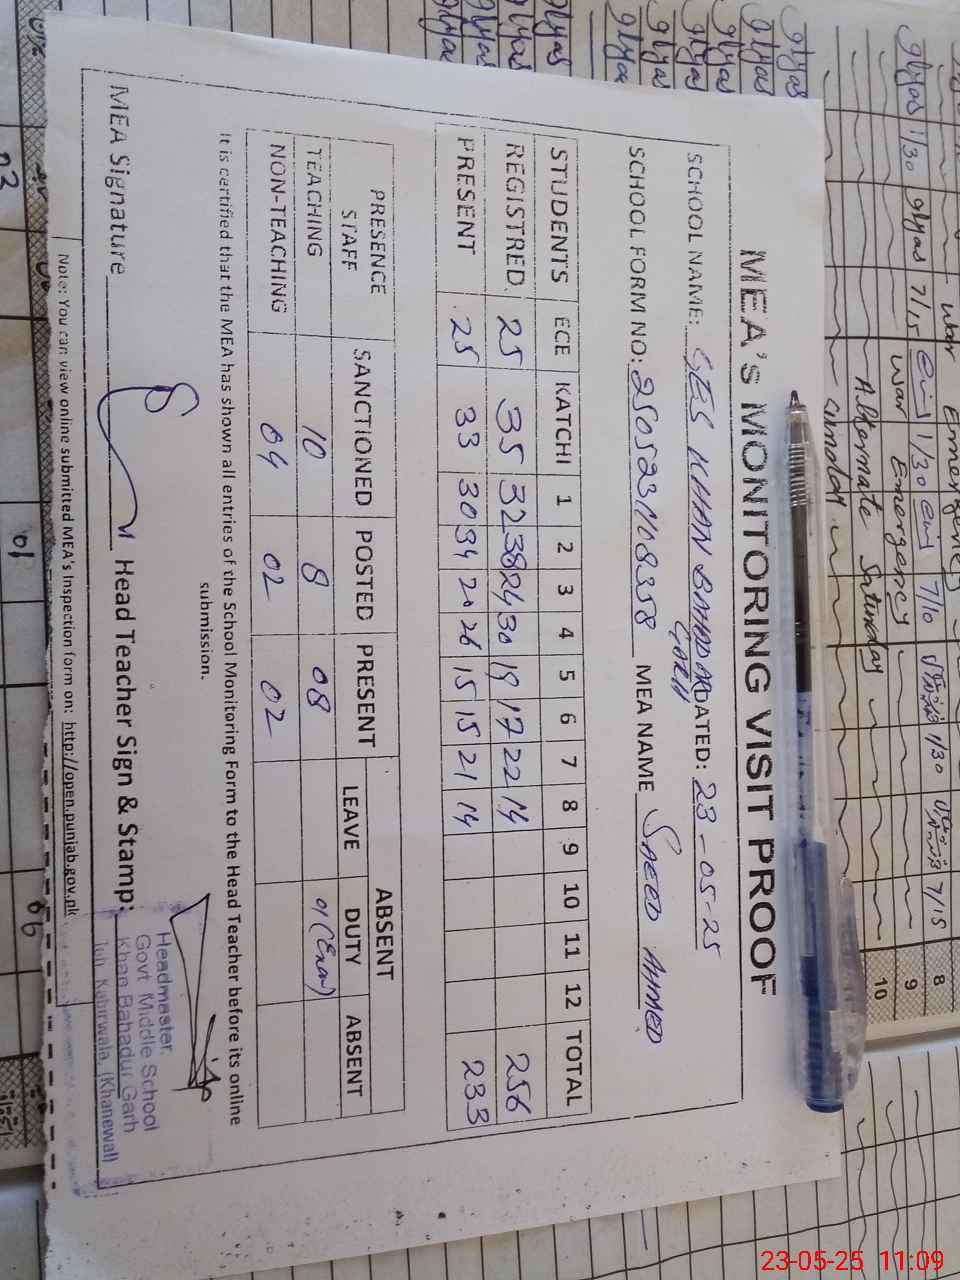 MEA'S MONITORING VISIT PROOF
SCHOOL NAME: GES KHAN BAHADAR GARH DATED: 23-05-25
SCHOOL FORM NO: 2505231108358 MEA NAME SAEED AHMED
STUDENTS ECE KATCHI 1 2 3 4 5 6 7 8 9 10 11 12 TOTAL
REGISTRED 25 35 32 38 24 30 19 17 22 14 256
PRESENT 25 33 30 34 20 26 15 15 21 14 233
PRESENCE STAFF SANCTIONED POSTED PRESENT ABSENT
LEAVE DUTY ABSENT
TEACHING 10 8 08 01 (Exam)
NON-TEACHING 04 02 02
It is certified that the MEA has shown all entries of the School Monitoring Form to the Head Teacher before its online
submission.
MEA Signature Head Teacher Sign & Stamp:
Headmaster,
Govt Middle School
Khan Bahadur Garh
Teh. Kabirwala, (Khanewal)
Note: You can view online submitted MEA's Inspection form on: http://open.punjab.gov.pk
War Emergency
War Emergency
Alternate Saturday
8
9
10
23-05-25 11:09